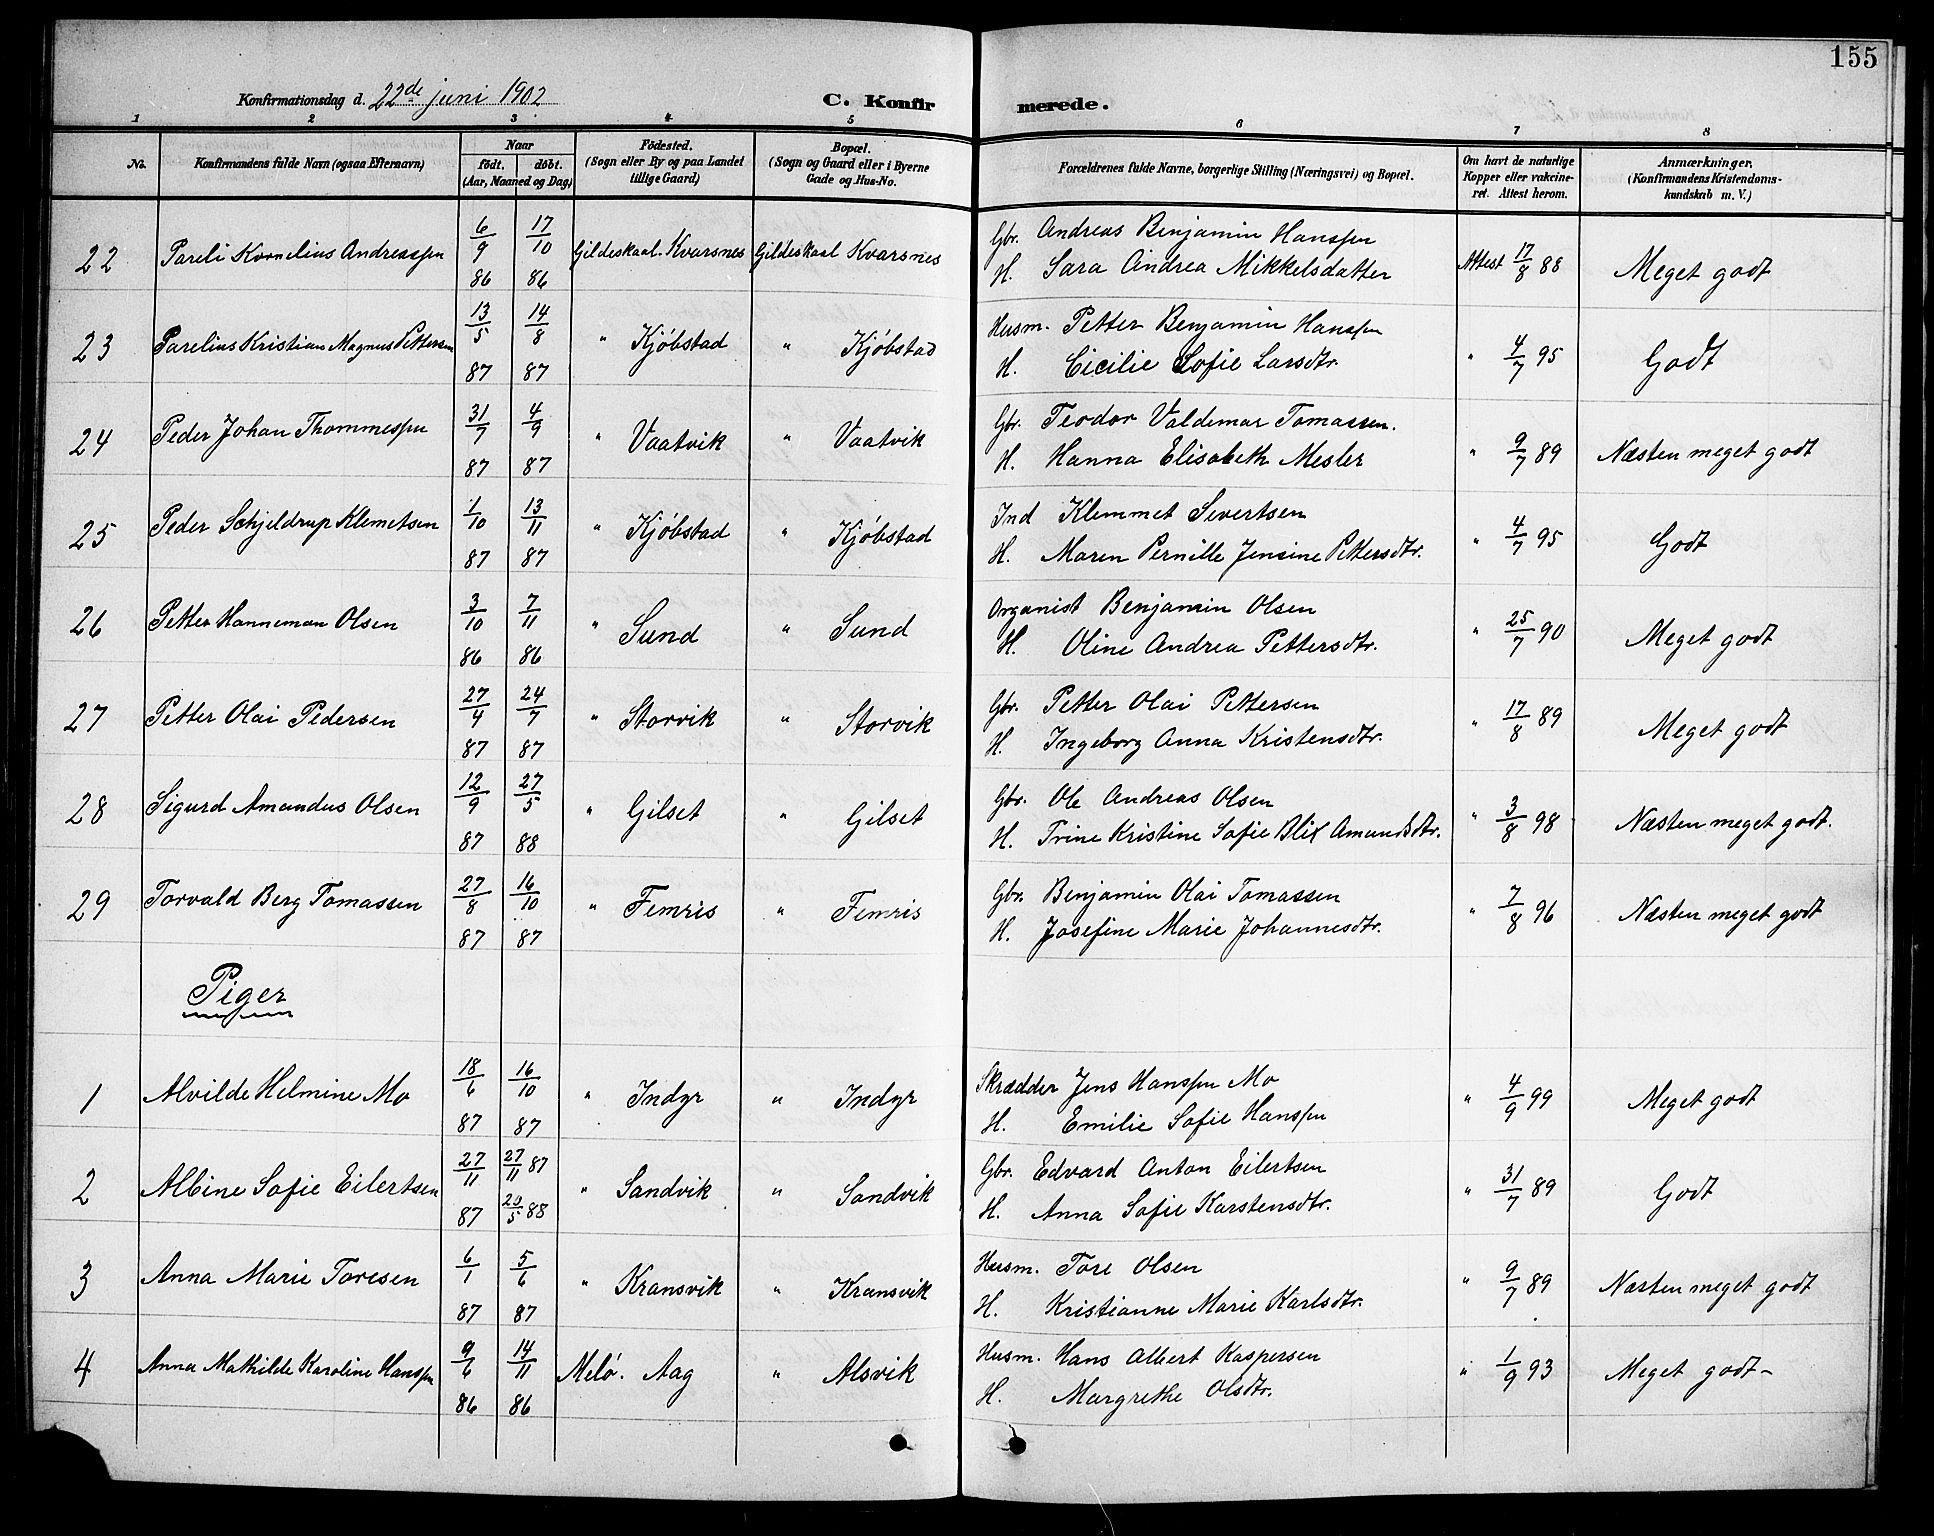 155
Konfirmationsdag d. 22de juni 1902 C. Konfirmerede.
1 2 3 4 5 6 7 8
No. Konfirmandens fulde Navn (ogsaa Efternavn) Naar født. døbt. (Aar, Maaned og Dag) Fødested. (Sogn eller By og paa Landet tillige Gaard) Bopæl. (Sogn og Gaard eller i Byerne Gade og Hus-No. Forældrenes fulde Navne, borgerlige Stilling (Næringsvei) og Bopæl. Om havt de naturlige Kopper eller vakcineret. Attest herom. Anmærkninger. (Konfirmandens Kristendomskundskab m. V.)
22 Pareli Kornelius Andreassen 6/9 86 17/10 86 Gildeskaal Kvarsnes Gildeskaal Kvarsnes Gbr. Andreas Benjamin Hanssen
H. Sara Andrea Mikkelsdatter Attest 17/8 88 Meget godt
23 Parelius Kristian Magnus Pettersen 13/5 87 14/8 87 " Kjøbstad " Kjøbstad Husm. Petter Benjamin Hanssen
H. Cicilie Sofie Larsdtr. " 4/7 95 Godt
24 Peder Johan Thommessen 31/7 87 4/9 87 " Vaatvik " Vaatvik Gbr. Teodor Valdemar Tomassen.
H. Hanna Elisabeth Mesler " 9/7 89 Næsten meget godt
25 Peder Schjeldrup Klemetsen 1/10 87 13/11 87 " Kjøbstad " Kjøbstad Ind Klemmet Sivertsen
H. Maren Pernille Jensine Pettersdtr. " 4/7 95 Godt
26 Petter Hanneman Olsen 3/10 86 7/11 86 " Sund " Sund Organist Benjamin Olsen
H. Oline Andrea Pettersdtr. " 25/7 90 Meget godt
27 Petter Olai Pedersen 27/4 87 24/7 87 " Storvik " Storvik Gbr. Petter Olai Pettersen
H. Ingeborg Anna Kristensdtr. " 17/8 89 Meget godt
28 Sigurd Amandus Olsen 12/9 87 27/5 88 " Gilset " Gilset Gbr. Ole Andreas Olsen
H. Trine Kristine Sofie Blix Amundsdtr. " 3/8 98 Næsten meget godt.
29 Torvald Berg Tomassen 27/8 87 16/10 87 " Femris " Femris Gbr. Benjamin Olai Tomassen
H. Josefine Marie Johannesdtr. " 7/8 96 Næsten meget godt
Piger
1 Alvilde Helmine Mo 18/6 87 16/10 87 " Indyr " Indyr Skrædder Jens Hanssen Mo
H. Emilie Sofie Hanssen " 4/9 99 Meget godt
2 Albine Sofie Eilertsen 27/11 87 27/11 87 20/5 88 " Sandvik " Sandvik Gbr. Edvard Anton Eilertsen
H. Anna Sofie Karstensdtr. " 31/7 89 Godt
3 Anna Marie Toresen 6/1 87 5/6 87 " Kransvik " Kransvik Husm. Tore Olsen
H. Kristianne Marie Karlsdtr. " 9/7 89 Næsten meget godt
4 Anna Mathilde Karoline Hanssen 9/6 86 14/11 86 Melø. Aag " Alsvik Husm. Hans Albert Kaspersen
H. Margrethe Olsdtr. " 1/9 93 Meget godt